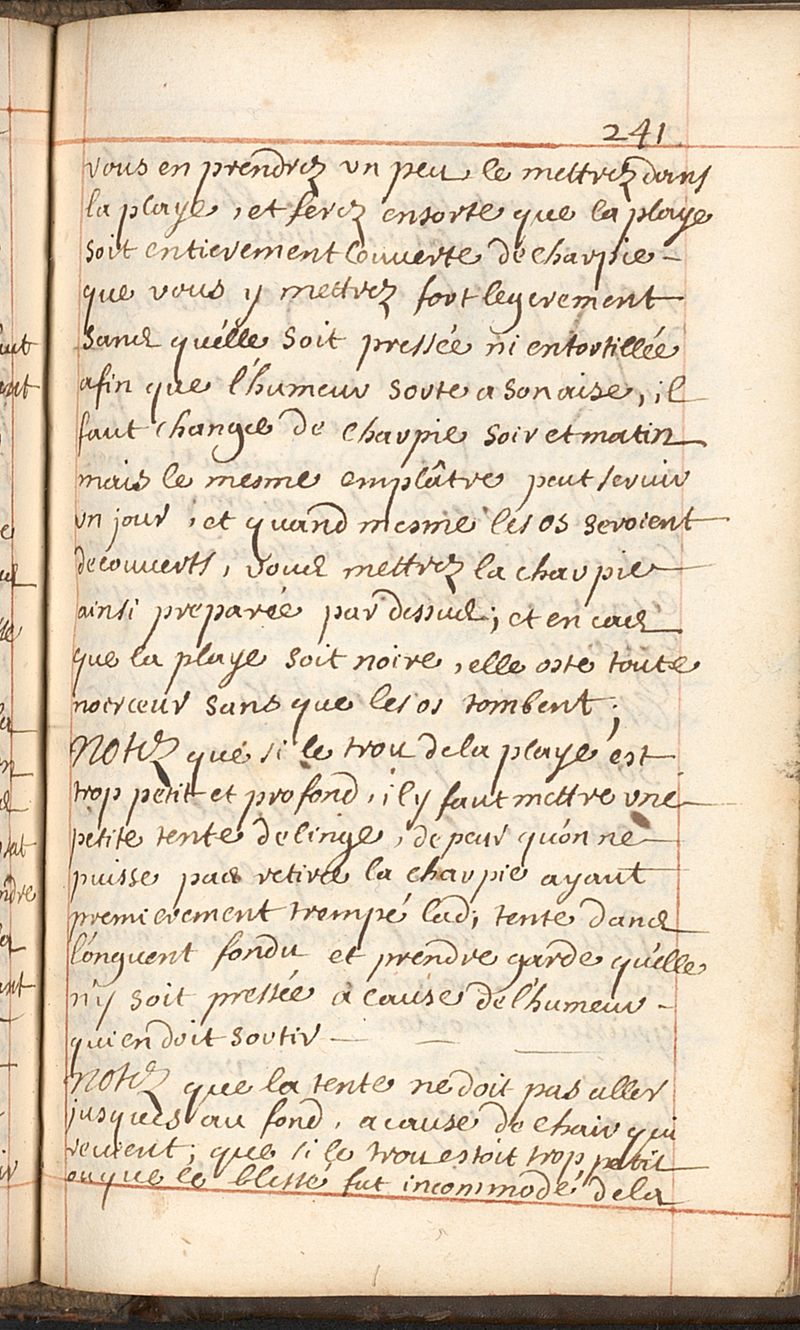 241
vous en prendrez un peu, le mettrez dans
la playe, et ferez ensorte que la playe
soit entierement couuerte de charpie -
que vous y mettrez fort legerement
sans qu'elle soit pressée ni entortillée
afin que l'humeur sorte a son aise, il
faut changer de charpie soir et matin
mais le mesme emplâtre peut seruir
un jour, et quand mesme les os seroient
decouuerts, vous mettrez la charpie
ainsi preparée par dessus; et en cas
que la playe soit noire, elle oste toute
noirceur sans que les os tombent;
Notez que si le trou de la playe est
trop petit et profond, il y faut mettre une
petite tente de linge, de peur qu'on ne
puisse pas retirer la charpie ayant
premierement trempé lad; tente dans
l'onguent fondu et prendre garde qu'elle
n'y soit pressée a cause de l'humeur -
qui en doit sortir -
Notez que la tente ne doit pas aller
jusques au fond, a cause de chair qui
reuient; que si le trou estoit trop petit
ou que le blessé fut incommodé de la